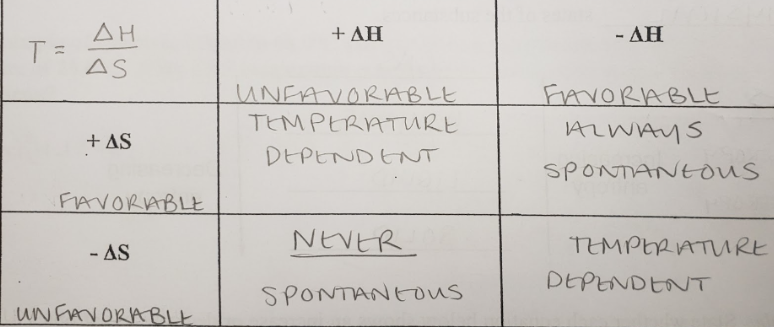 T = ΔH / ΔS
+ ΔH
UNFAVORABLE
- ΔH
FAVORABLE
+ ΔS
FAVORABLE
TEMPERATURE
DEPENDENT
ALWAYS
SPONTANEOUS
- ΔS
UNFAVORABLE
NEVER
SPONTANEOUS
TEMPERATURE
DEPENDENT